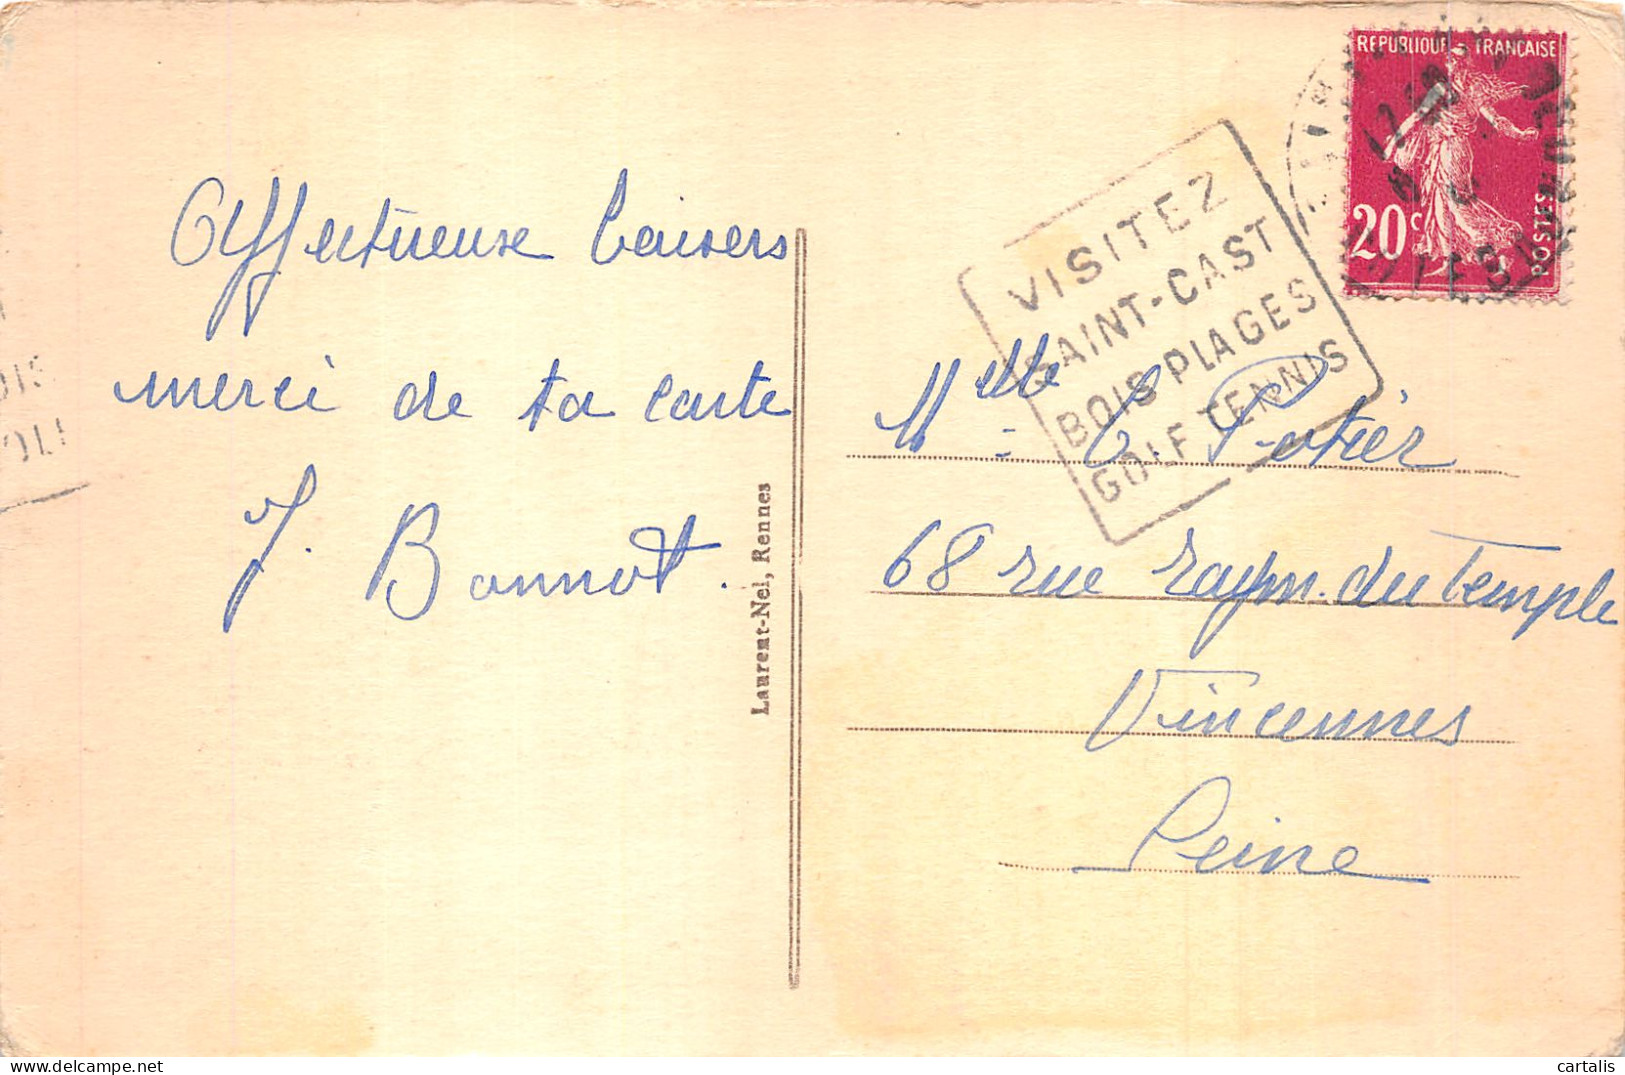 Affectueuse baisers
merci de ta carte
J. Bonnot.
Laurent-Nel, Rennes
REPUBLIQUE FRANÇAISE
20c
POSTES
VISITEZ
SAINT-CAST
BOIS PLAGES
GOLF TENNIS
Melle C. Potier
68 rue Raym. du Temple
Vincennes
Seine
cartalis